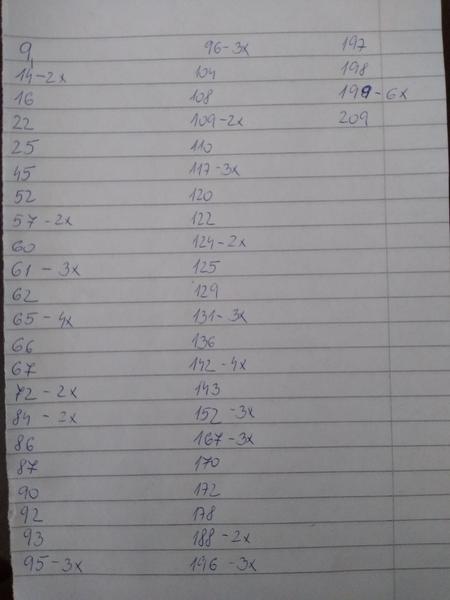 9
14-2x
16
22
25
45
52
57-2x
60
61-3x
62
65-4x
66
67
72-2x
84-2x
86
87
90
92
93
95-3x
96-3x
104
108
109-2x
110
117-3x
120
122
124-2x
125
129
131-3x
136
142-4x
143
152-3x
167-3x
170
172
178
188-2x
196-3x
197
198
199-6x
209